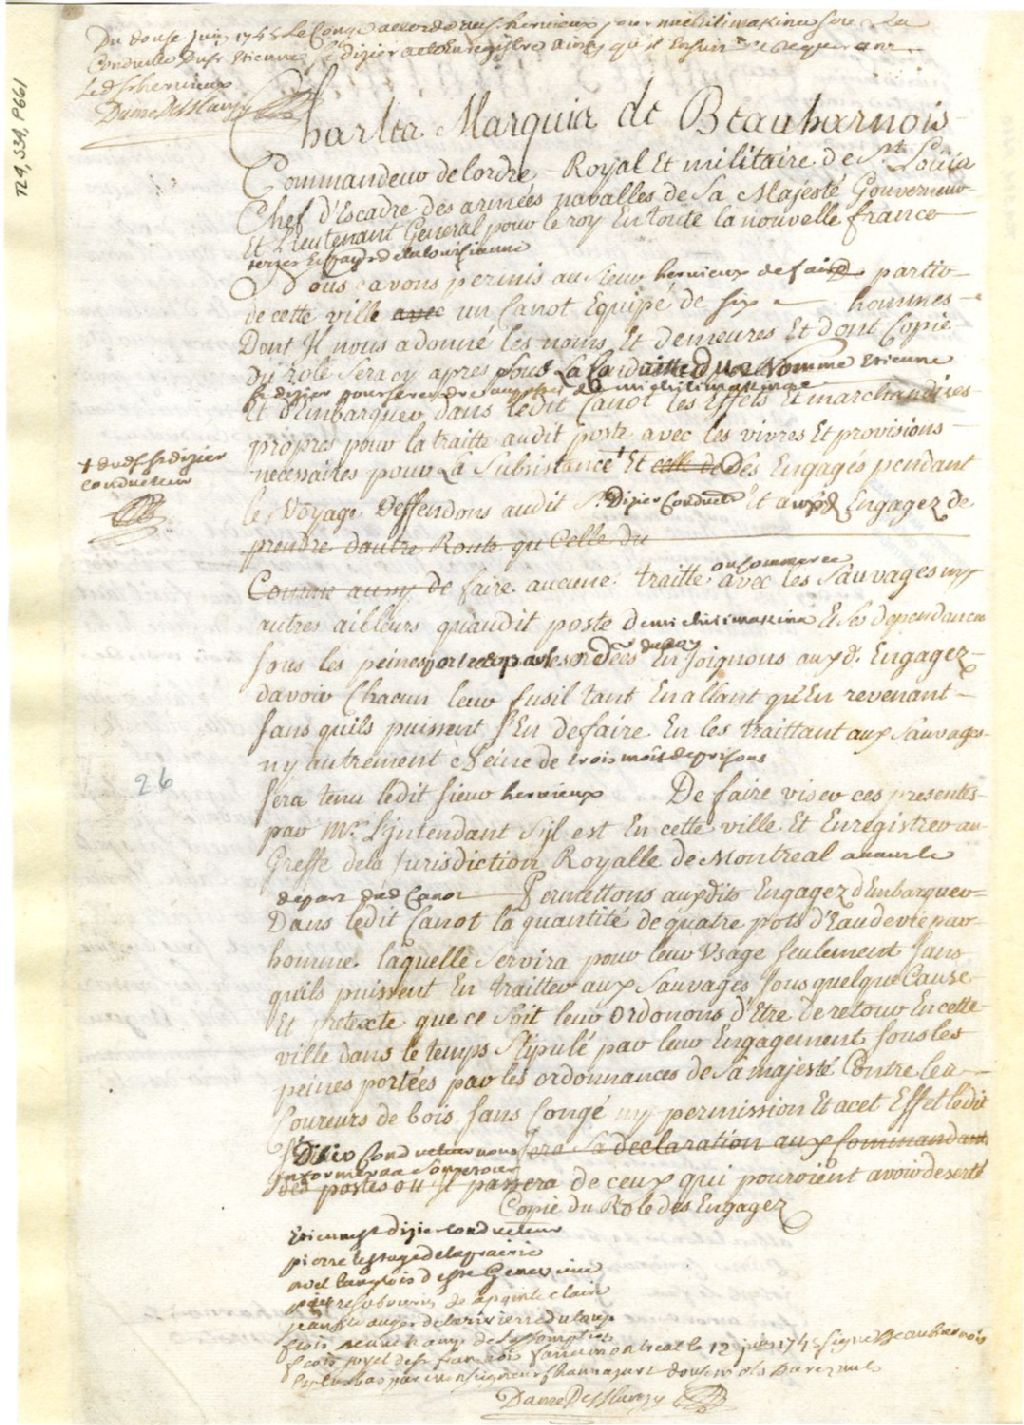 Du douse juin 1745 Le Congé accordé au Sr hervieux pour michilimakina sous La
Conduitte du Sr Etienne St dizier a été Enregistré ainsy qu'il Ensuit Le Requerant
Led Sr hervieux
DanréDeBlanzy
TL4, S34, P661
Charles Marquis de Beauharnois
Commandeur de lordre Royal Et militaire de St Louis
Chef d'Escadre des armées navalles de Sa Majesté Gouverneur
Et Lieutenant General pour le roy En toute la nouvelle france
terres Et pays de la louisianne
Nous avons permis au Sieur hervieux de faire partir
de cette ville avec un Canot Equipé de six hommes
Dont Il nous a donné les noms Et demeures Et dont Copie
du rolle Sera cy apres sous La Conduitte du Nommé Etienne
St dizier pour se rendre au poste de michilimakinac
Et d'Embarquer dans ledit Canot les Effets Et marchandises
propres pour la traitte audit poste avec les vivres Et provisions
necessaires pour La Subsistance Et celle de Des Engagés pendant
+ dud Sr St dizier
conducteur
le Voyage Deffendons audit Sr Dizier Conducteur Et auxd Engagez de
prendre dautre Route que Celle du
Comme aussy de faire aucune traitte ou Commerce avec les Sauvages ny
autres ailleurs quaudit poste de michilimakina Et Ses dependances
sous les peines portées par les ordces du Roy Enjoignons auxd. Engagez
davoir Chacun leur fusil tant En allant qu'En revenant
sans quils puissent S'En defaire En les traittant aux Sauvages
ny autrement à Peine de trois mois de prison
26
Sera tenu ledit sieur hervieux De faire viser ces presentes
par Mr. L'jntendant Sjl est En cette ville Et Enregistrer au
Greffe dela Jurisdiction Royalle de Montreal avant le
depart dud Canot Permettons auxdits Engagez d'Embarquer
Dans ledit Canot la quantité de quatre pots d'Eau de vie par
homme laquelle Servira pour leur Usage seulement sans
quils puissent En traitter aux Sauvages sous quelque Cause
Et pretexte que ce soit leur ordonons d'Etre de retour En cette
ville dans le temps Stipulé par leur Engagement sous les
peines portées par les ordonnances de Sa majesté Contre les
Coureurs de bois sans Congé ny permission Et acet Effet ledit
St Dizier Conducteur nous fera Sa declaration aux Commandants
Informera a Son retour
des postes ou Il passera de ceux qui pouroient avoir deserté
Copie du Role des Engagez
Etienne St dizier conducteur
pierre lesage de laprairie
langlois de Ste Genevieve
de la pointe claire
jean Bte auger de la riviere du loup
de Lassomption
de St françois fait a montreal le 12 juin 1745 signé Beauharnois
Et plus bas par monseigneur
DanréDeBlanzy